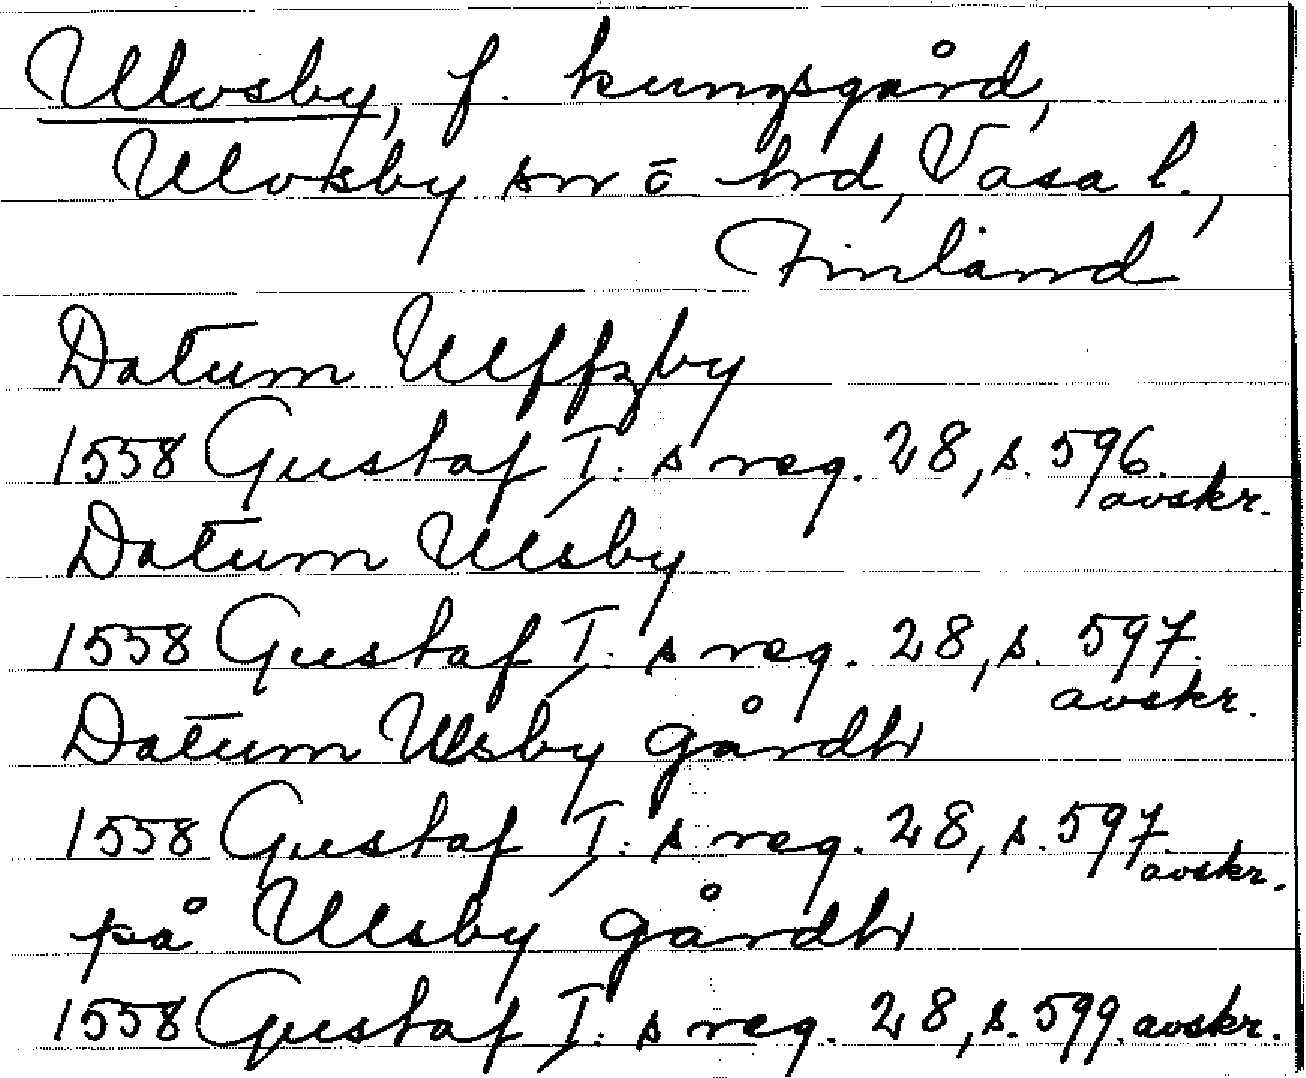 Ulvsby, f. kungsgård,
Ulvsby sn o hd, Vasa l.,
Finland
Datum Ulffzby
1558 Gustaf I:s reg. 28, s. 596.
avskr.
Datum Ulsby
1558 Gustaf I:s reg. 28, s. 597.
avskr.
Datum Ulsby gårdh
1558 Gustaf I:s reg. 28, s. 597.
avskr.
på Ulsby gårdh
1558 Gustaf I:s reg. 28, s. 599. avskr.